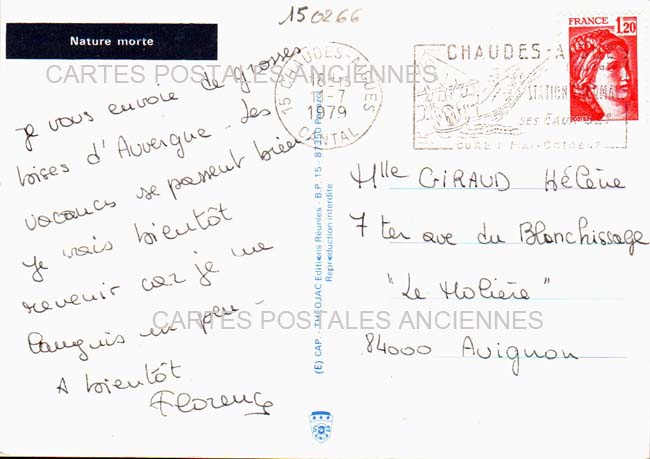 150266
Nature morte
FRANCE
1,20
15 CHAUDES-AIGUES
18H15
-7
1979
CANTAL
CHAUDES-A
STATION
SES EAUX
CURE : MAI-OCTOBRE
CARTES POSTALES ANCIENNES
Je vous envoie de grosses
bises d'Auvergne - Les
vacances se passent bien
Je vais bientôt
revenir car je me
languis un peu -
A bientôt
Florence
(E) CAP - THÉOJAC Editions Réunies - B.P. 15 - 87350 Panazol
Reproduction interdite
Mlle GIRAUD Hélène
7 ter ave du Blanchissage
"Le Molière"
84000 Avignon
CARTES POSTALES ANCIENNES